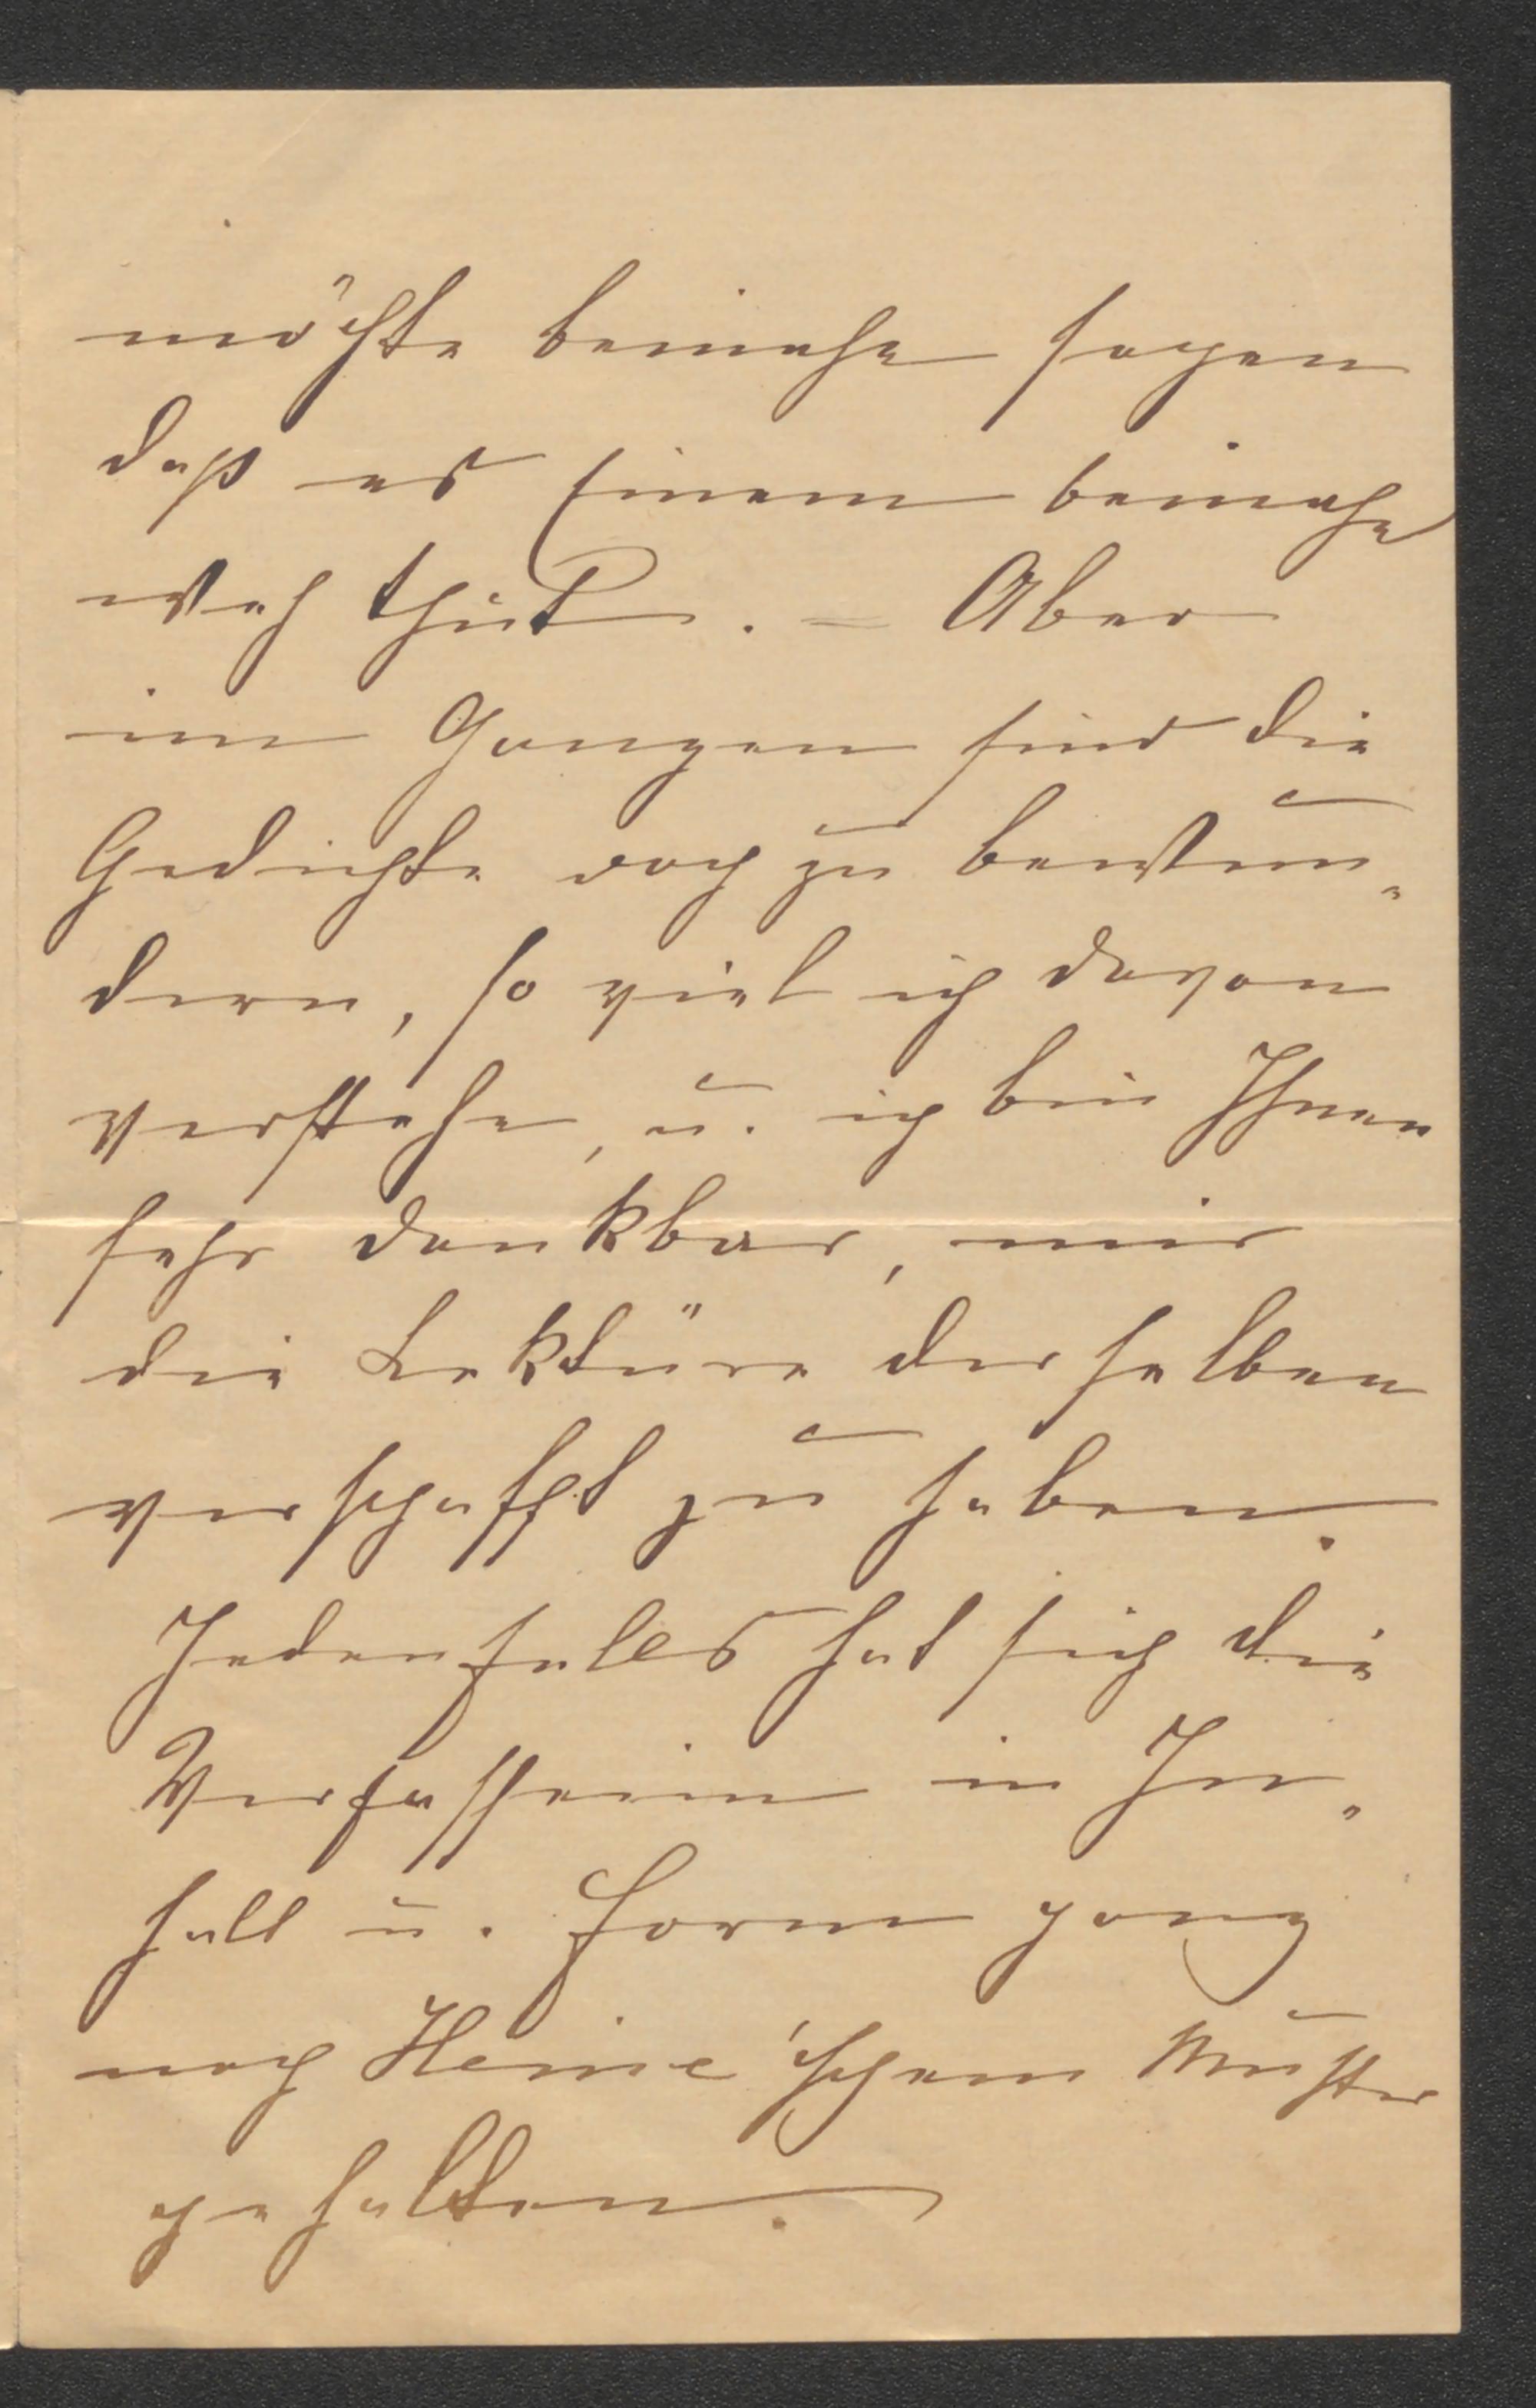 möchte beinahe sagen
daß es Einem beinahe
weh thut. – Aber
im Ganzen sind die
Gedichte doch zu bewun-
dern, so viel ich davon
verstehe, u. ich bin Ihnen
sehr dankbar, mir
die Lektüre derselben
verschafft zu haben.
Jedenfalls hat sich die
Verfasserin in In-
halt u. Form ganz
nach Heine'schem Muster
gehalten.